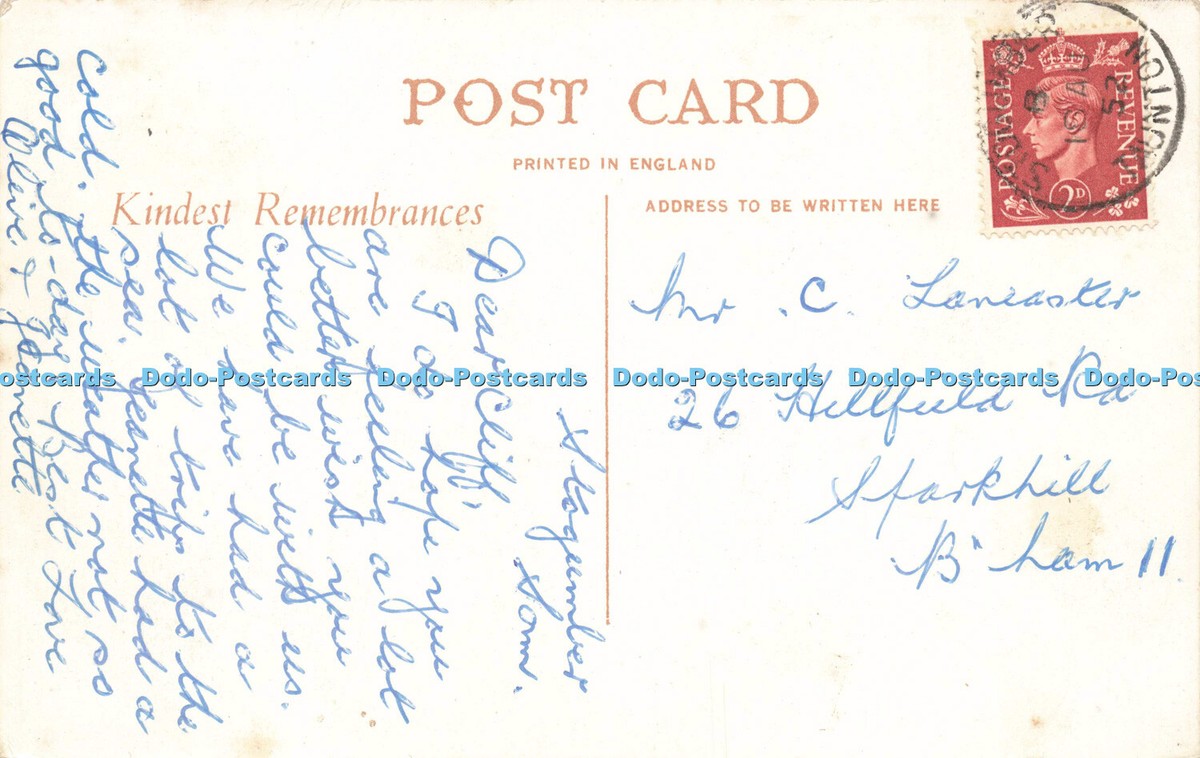 POST CARD
PRINTED IN ENGLAND
Kindest Remembrances
ADDRESS TO BE WRITTEN HERE
POSTAGE REVENUE
2D
TAUNTON
52
Stogumber
Som.
Dear Cliff,
I do hope you
are feeling a lot
better wish you
could be with us.
We have had a
lot of trips to the
sea. Jeanette had a
cold. the weather not so
good to-day Best Love
Olive & Jeanette
Mr. C. Lancaster
26 Hillfield Rd
Sparkhill
B'ham 11
Dodo-Postcards Dodo-Postcards Dodo-Postcards Dodo-Postcards Dodo-Postcards